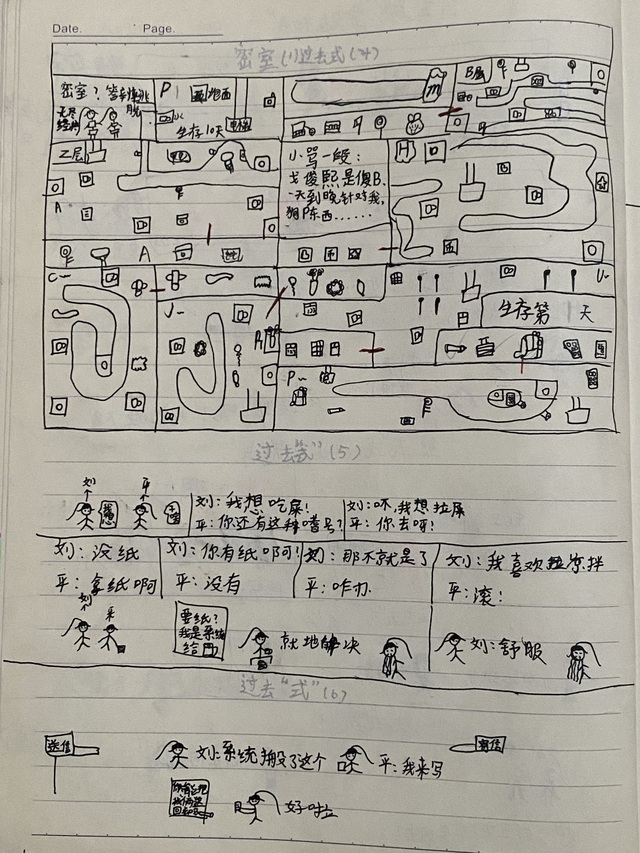 Date.
Page.
密室(1)过去式(4)
密室?
P
生存10天
m
B层
Z层
A
小骂一段:
戈俊熙是傻B,
天到晚针对我,
狗P东西……
H
A
C~
J~
U~
生存第 天
P~
过去“式”(5)
刘
平
刘:我想吃屎!
平:你还有这种嗜号?
刘:呸,我想拉屎
平:你去呀!
刘:没纸
平:拿纸啊
刘:你有纸啊!
平:没有
刘:那不就是了
平:咋办
刘:我喜欢拉凉拌
平:滚!
刘
要纸?
我是系统
给
就地解决
刘:舒服
过去“式”(6)
送信
刘:系统搬了这个
平:我来写
寄信
好啦